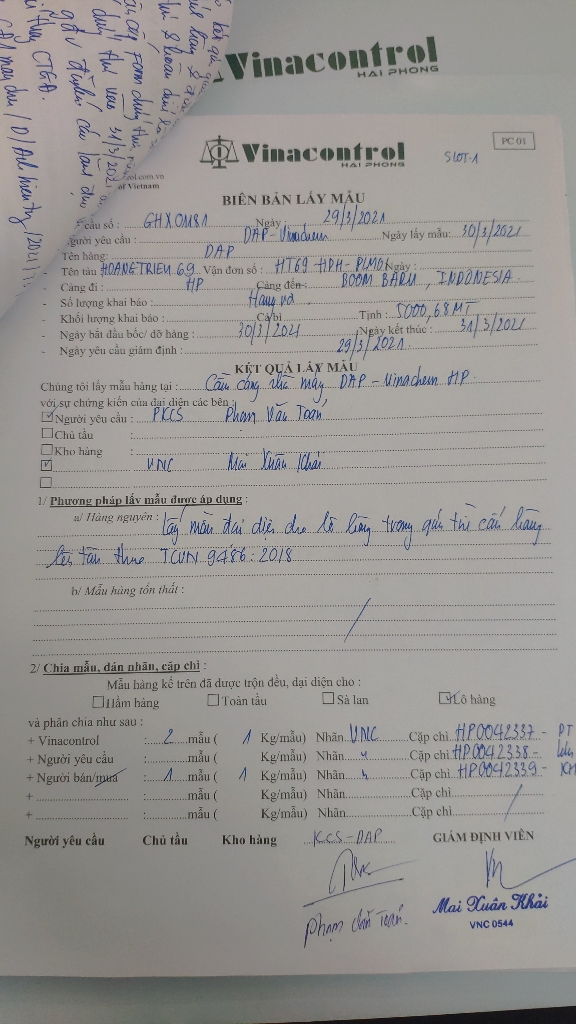 Vinacontrol
HAI PHONG
Vinacontrol
HAI PHONG
PC 01
SLOT-1
BIÊN BẢN LẤY MẪU
cầu số : GHXOM81 Ngày 29/3/2021
Người yêu cầu : DAP-Vinachem Ngày lấy mẫu: 30/3/2021
- Tên hàng: DAP
- Tên tàu HOANG TRIEU 69 Vận đơn số : HT69-HPH-PLM01 Ngày :
- Cảng đi : HP Cảng đến: BOOM BARU, INDONESIA.
- Số lượng khai báo : Hàng xá
- Khối lượng khai báo : Cả bì Tịnh : 5000,68 MT
- Ngày bắt đầu bốc/ dỡ hàng : 30/3/2021 Ngày kết thúc : 31/3/2021
- Ngày yêu cầu giám định : 29/3/2021
KẾT QUẢ LẤY MẪU
Chúng tôi lấy mẫu hàng tại : Cầu cảng nhà máy DAP-Vinachem HP
với sự chứng kiến của đại diện các bên :
Người yêu cầu : PKCS Phạm Văn Toán
Chủ tầu :
Kho hàng :
VNC Mai Xuân Khải
1/ Phương pháp lấy mẫu được áp dụng :
a/ Hàng nguyên : Lấy mẫu đại diện cho lô hàng trong quá trình cẩu hàng
lên tàu theo TCVN 9486:2018
b/ Mẫu hàng tổn thất :
2/ Chia mẫu, dán nhãn, cặp chì :
Mẫu hàng kể trên đã được trộn đều, đại diện cho :
Hầm hàng Toàn tầu Sà lan Lô hàng
và phân chia như sau :
+ Vinacontrol : 2 mẫu ( 1 Kg/mẫu) Nhãn VNC Cặp chì HP0042337 - PT
+ Người yêu cầu : mẫu ( Kg/mẫu) Nhãn " Cặp chì HP0042338 - lưu
+ Người bán/mua : 1 mẫu ( 1 Kg/mẫu) Nhãn " Cặp chì HP0042339 - KH
+ : mẫu ( Kg/mẫu) Nhãn Cặp chì
+ : mẫu ( Kg/mẫu) Nhãn Cặp chì
Người yêu cầu Chủ tầu Kho hàng KCS-DAP GIÁM ĐỊNH VIÊN
Phạm Văn Toán
Mai Xuân Khải
VNC 0544